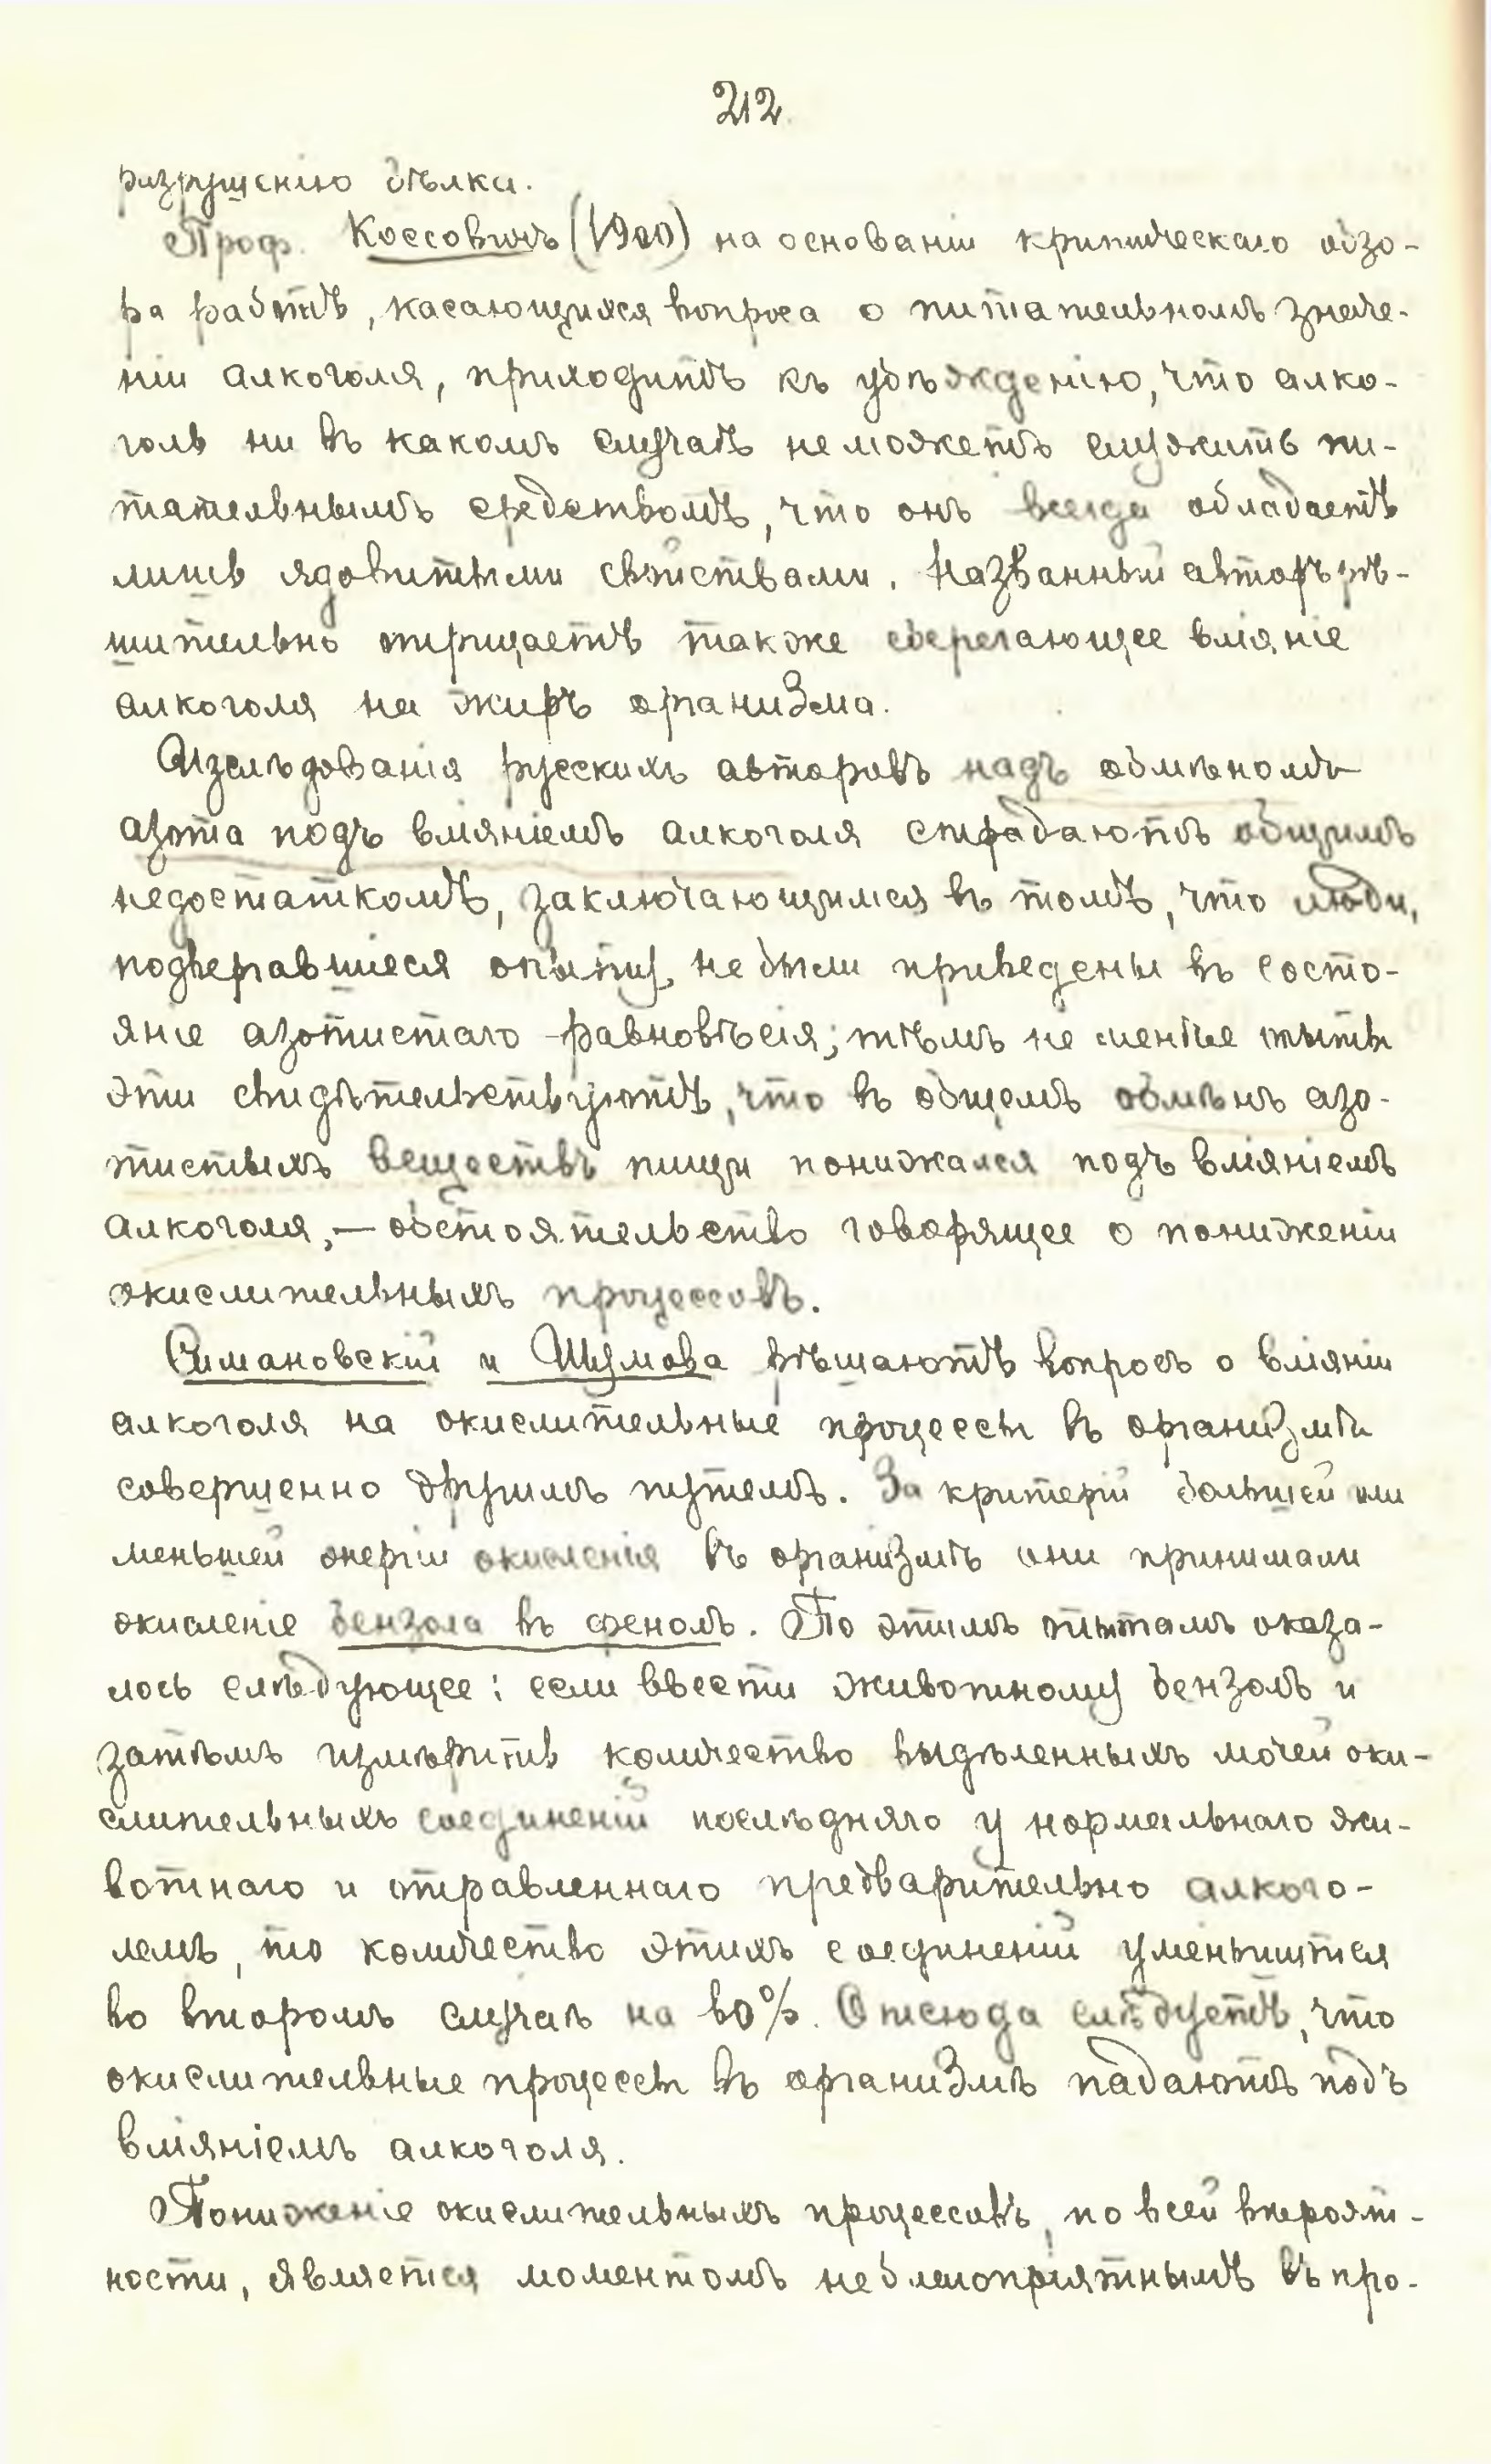 212.
разрушенію бѣлка.
Проф. Коссовичъ (1900) на основаніи критическаго обзо-
ра работъ, касающихся вопроса о питательномъ значе-
ніи алкоголя, приходитъ къ убѣжденію, что алко-
голь ни въ какомъ случаѣ не можетъ служить пи-
тательнымъ средствомъ, что онъ всегда обладаетъ
лишь ядовитыми свойствами. Названный авторъ рѣ-
шительно отрицаетъ также сберегающее вліяніе
алкоголя на жиръ организма.
Изслѣдованія русскихъ авторовъ надъ обмѣномъ
азота подъ вліяніемъ алкоголя страдаютъ общимъ
недостаткомъ, заключающимся въ томъ, что люди,
подвергавшіеся опыту, не были приведены въ состо-
яніе азотистаго равновѣсія; тѣмъ не менѣе опыты
эти свидѣтельствуютъ, что въ общемъ обмѣнъ азо-
тистыхъ веществъ пищи понижался подъ вліяніемъ
алкоголя, — обстоятельство говорящее о пониженіи
окислительныхъ процессовъ.
Симановскій и Шумова рѣшаютъ вопросъ о вліяніи
алкоголя на окислительные процессы въ организмѣ
совершенно другимъ путемъ. За критерій большей или
меньшей энергіи окисленія въ организмѣ они принимали
окисленіе бензола въ фенолъ. По этимъ опытамъ оказа-
лось слѣдующее: если ввести животному бензолъ и
затѣмъ измѣрить количество выдѣленныхъ мочей оки-
слительныхъ соединеній послѣдняго у нормальнаго жи-
вотнаго и отравленнаго предварительно алкого-
лемъ, то количество этихъ соединеній уменьшится
во второмъ случаѣ на 60%. Отсюда слѣдуетъ, что
окислительные процессы въ организмѣ падаютъ подъ
вліяніемъ алкоголя.
Пониженіе окислительныхъ процессовъ, по всей вѣроят-
ности, является моментомъ неблагопріятнымъ въ про-